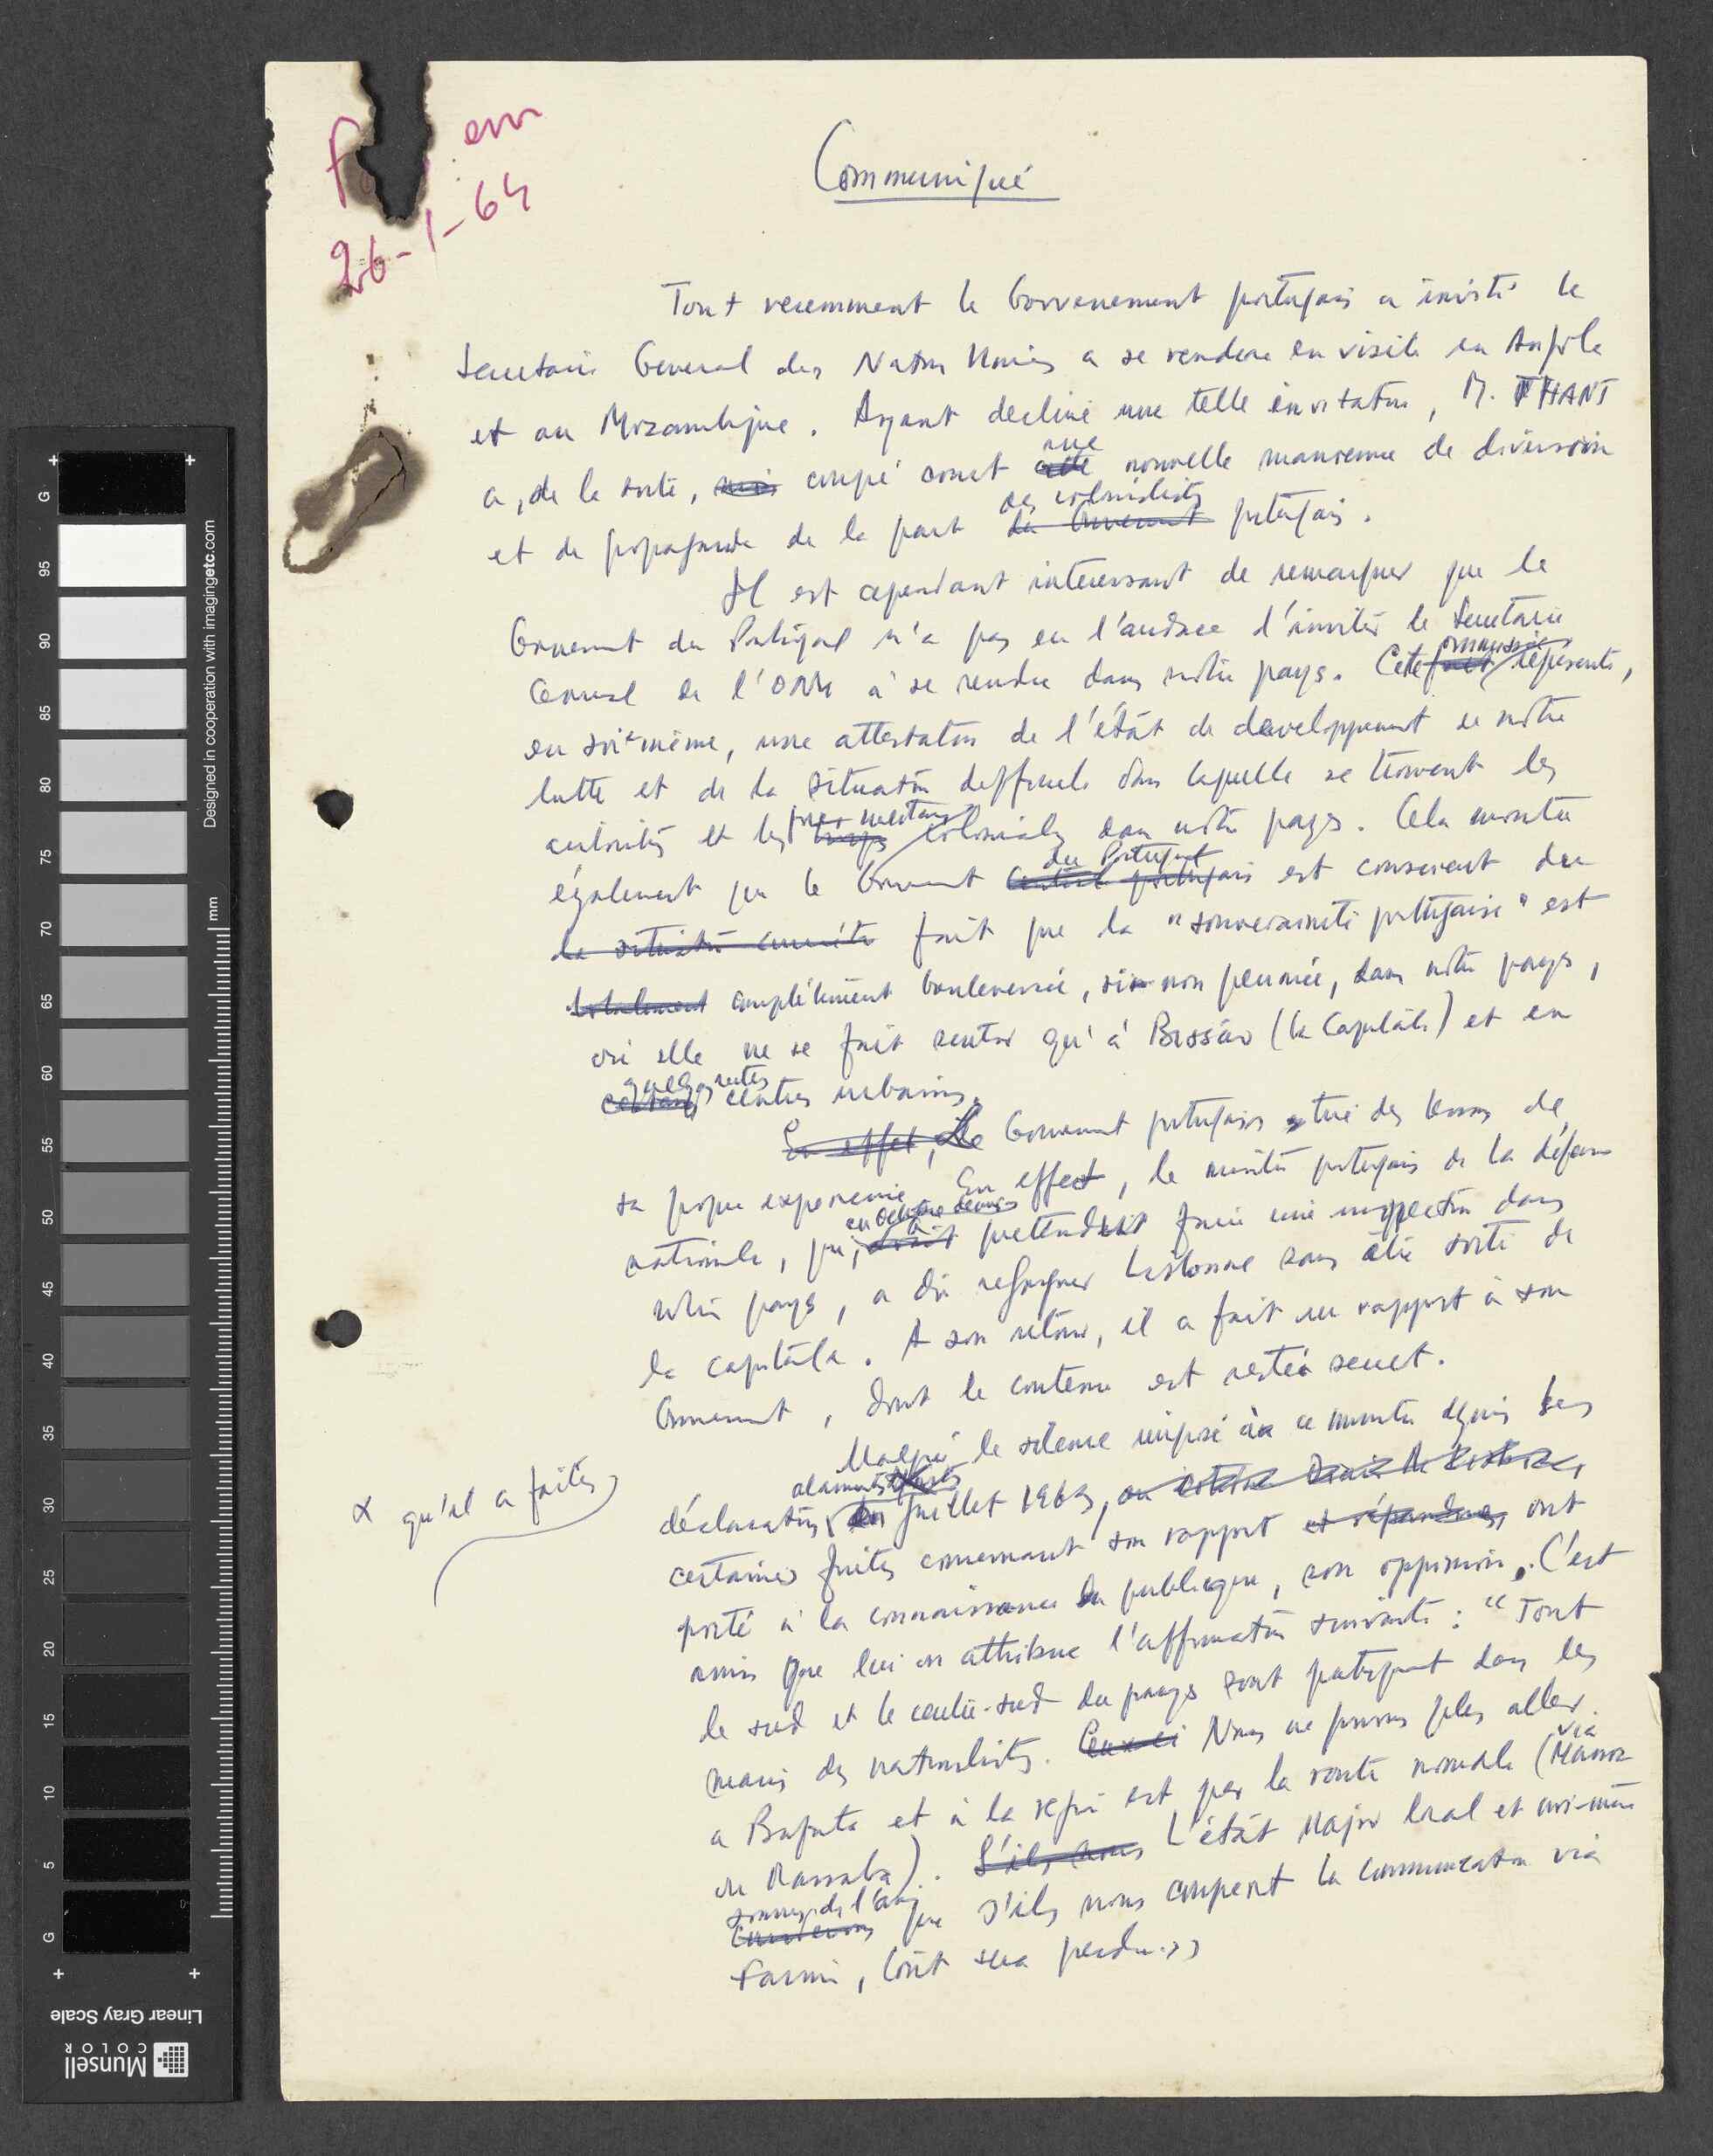 em
26-1-64
Communiqué
Tout recemment le Gouvernement portugais a invité le
Secretaire General des Nations Unies a se rendre en visite en Angola
et au Mozambique. Ayant decliné une telle invitation, M. THANT
a, de la sorte, coupé court cette une nouvelle manoeuvre de diversion
et de propagande de la part du Gouvernement des colonialistes portugais.
Il est cependant interessant de remarquer que le
Gouvernement du Portugal n'a pas eu l'audace d'inviter le Secretaire
General de l'ONU à se rendre dans notre pays. Cette fait omission represente,
en soi-même, une attestation de l'état de developpement de notre
lutte et de la situation difficile dans laquelle se trouvent les
autorités et les troupes forces militaires coloniales dans notre pays. Cela montre
également que le Gouvernement central portugais du Portugal est conscient du
la situation fait que la "souveraineté portugaise" est
totalement complètement bouleversée, sinon périmée, dans notre pays,
où elle ne se fait sentir qu'à Bissáo (la Capitale) et en
certains quelques autres centres urbains.
En effet, Le Gouvernement portugais a tiré des leçons de
sa propre experience. En effect, le ministre portugais de la défense
nationale, qui, en Octobre dernier pretendait faire une inspection dans
notre pays, a dû regagner Lisbonne sans être sorti de
la capitale. A son retour, il a fait un rapport à son
Gouvernement, dont le contenu est resté secret.
Malgré le silence imposé à ce ministre depuis les
déclarations alarmantes en Juillet 1963,
α qu'il a faites
certaines fuites concernant son rapport et répandues, ont
porté à la connaissance du publique, son oppinion. C'est
ainsi que lui on attribue l'affirmation suivante: "Tout
le sud et le centre-sud du pays sont pratiquement dans les
mains des nationalistes. Ceux-ci Nous ne pouvons plus aller
a Bafata et à la région est par la route normale (via Mansoa
ou Mansaba). S'ils nous L'état Major local et moi-même
sommes de l'avis que s'ils nous coupent la communication via
Farim, tout sera perdu."